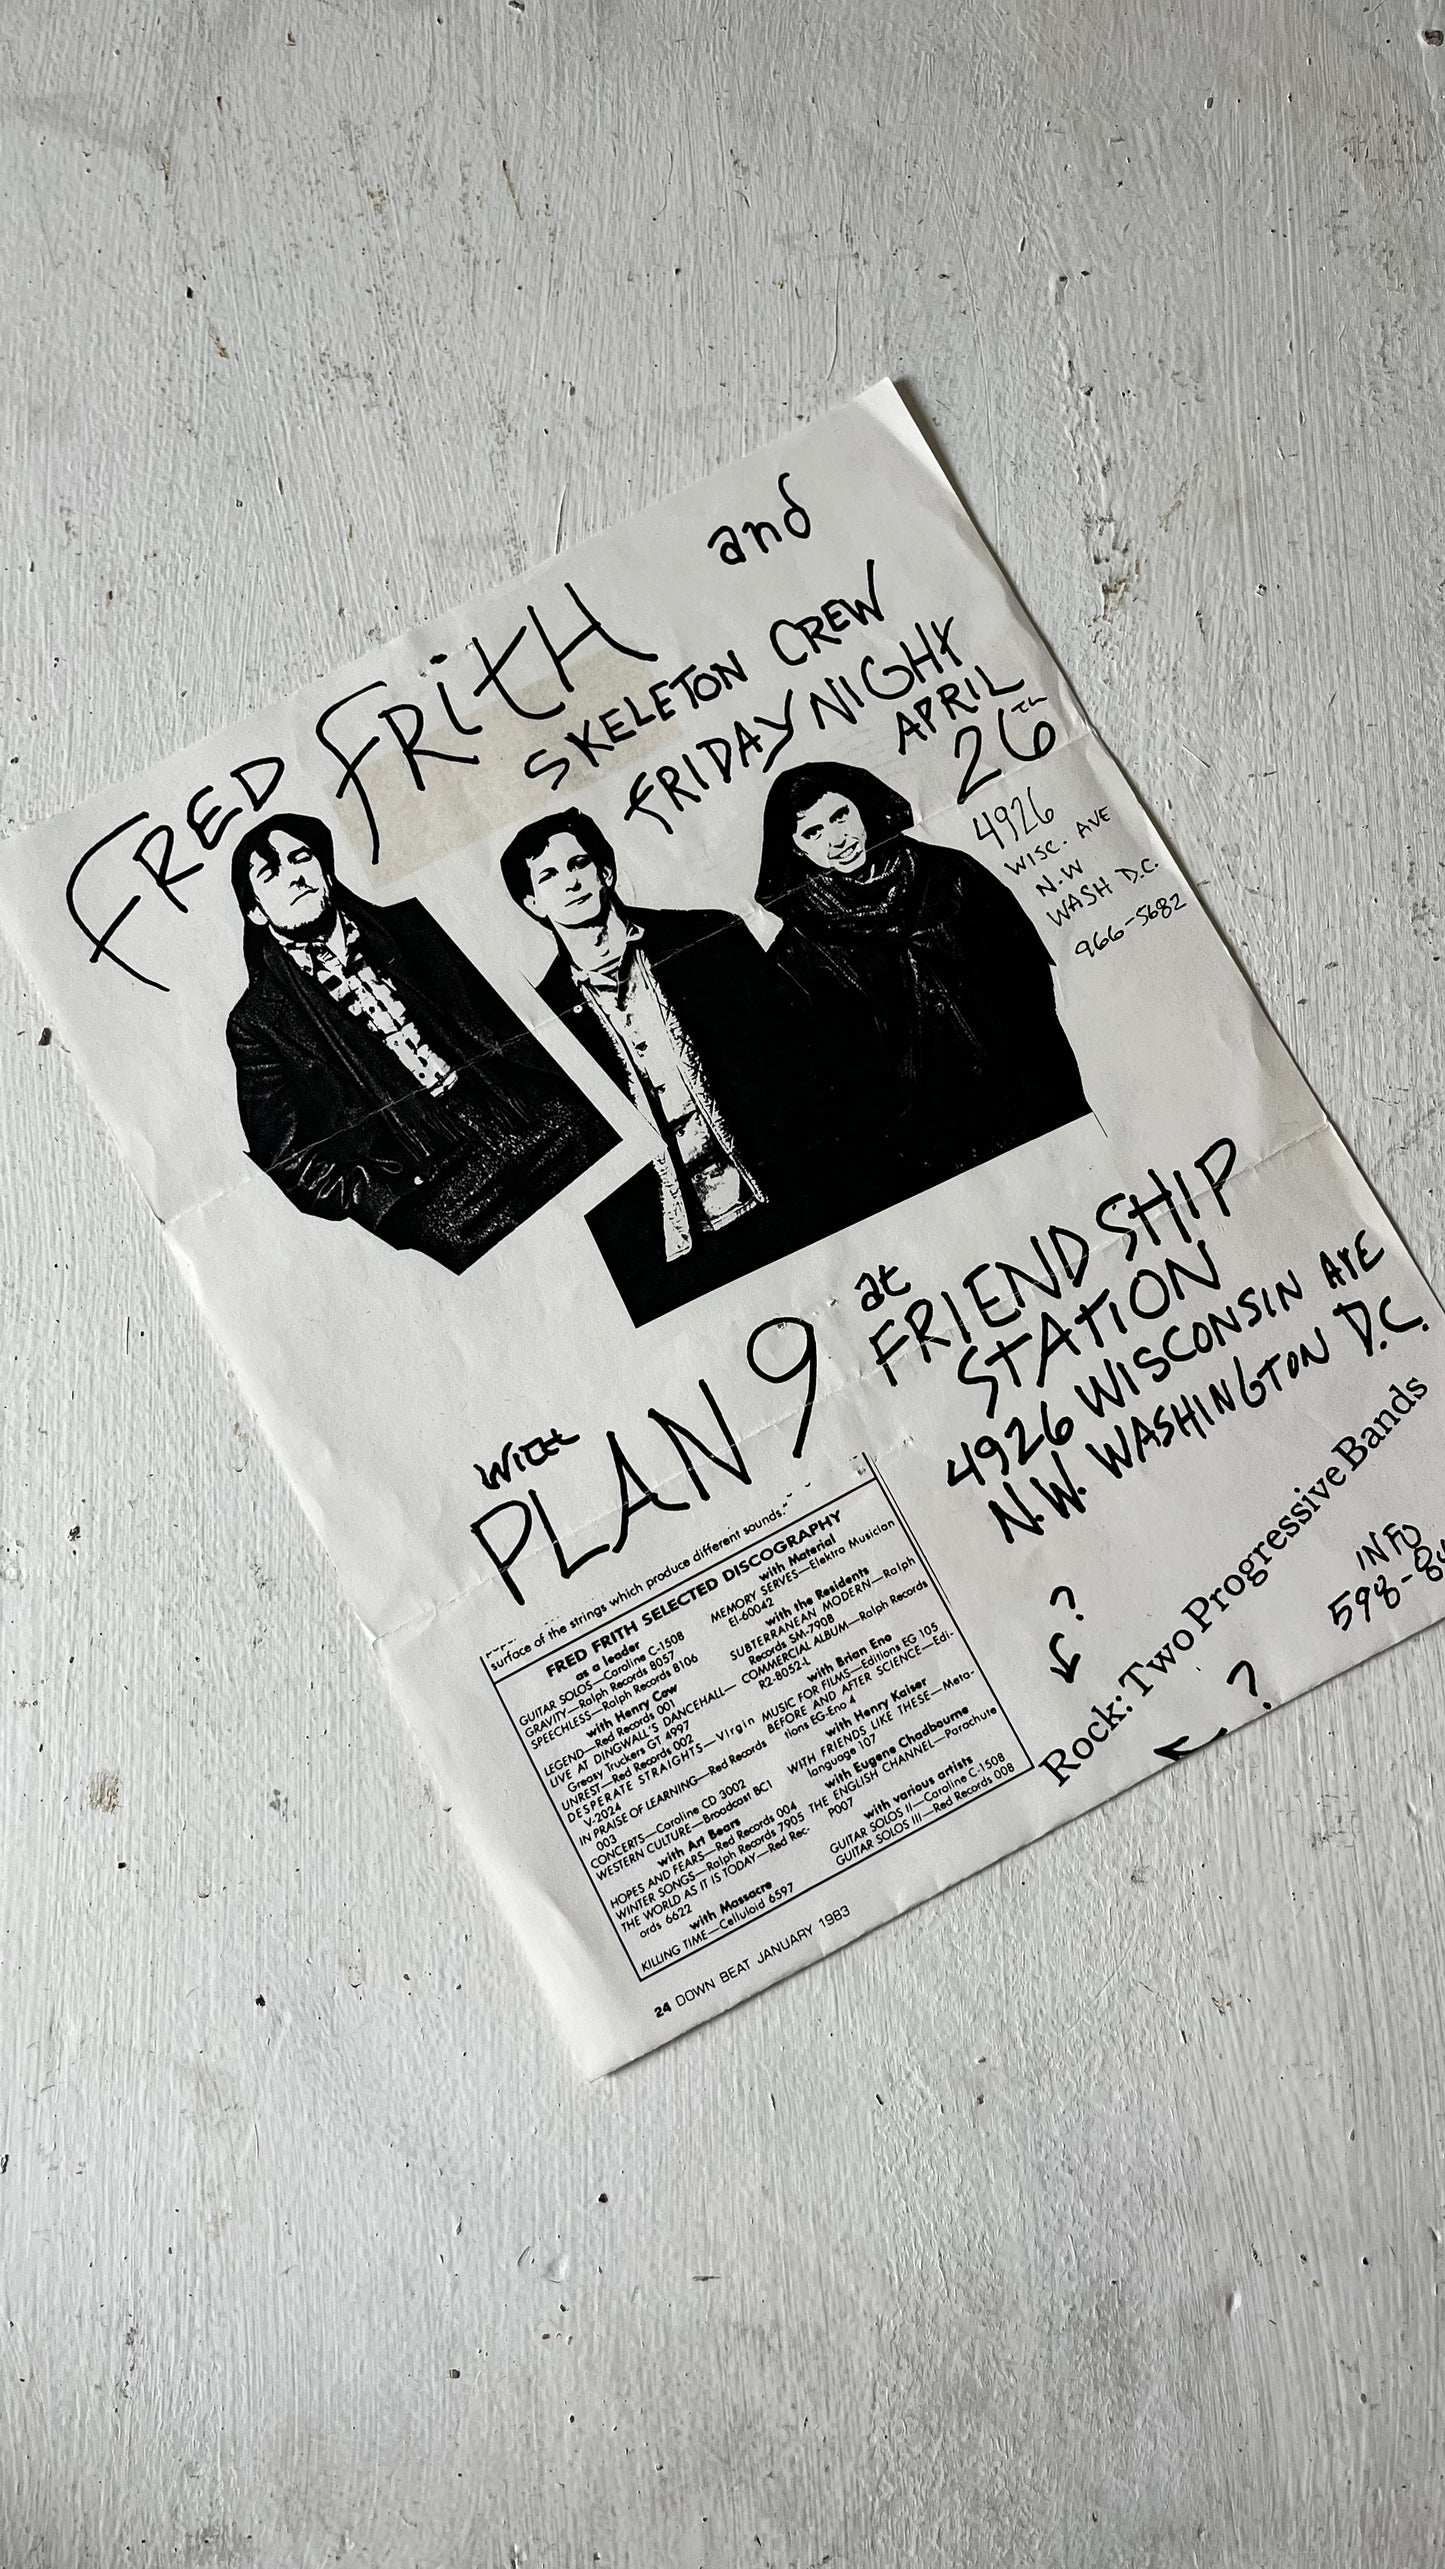 and
FRED FRitH
SKELETON CREW
FRIDAY NIGHY
APRIL
26TH
4926
WISC. AVE
N.W
WASH D.C.
966-5682
with
PLAN 9
at
FRIENDSHIP
STATION
4926 WISCONSIN AVE
N.W. WASHINGTON D.C.
surface of the strings which produce different sounds."
FRED FRITH SELECTED DISCOGRAPHY
as a leader
GUITAR SOLOS—Caroline C-1508
GRAVITY—Ralph Records 8057
SPEECHLESS—Ralph Records 8106
with Henry Cow
LEGEND—Red Records 001
LIVE AT DINGWALL'S DANCEHALL—
Greasy Truckers GT 4997
UNREST—Red Records 002
DESPERATE STRAIGHTS—Virgin
V-2024
IN PRAISE OF LEARNING—Red Records
003
CONCERTS—Caroline CD 3002
WESTERN CULTURE—Broadcast BC1
with Art Bears
HOPES AND FEARS—Red Records 004
WINTER SONGS—Ralph Records 7905
THE WORLD AS IT IS TODAY—Red Rec-
ords 6622
with Massacre
KILLING TIME—Celluloid 6597
with Material
MEMORY SERVES—Elektra Musician
EI-60042
with the Residents
SUBTERRANEAN MODERN—Ralph
Records SM-7908
COMMERCIAL ALBUM—Ralph Records
R2-8052-L
with Brian Eno
MUSIC FOR FILMS—Editions EG 105
BEFORE AND AFTER SCIENCE—Edi-
tions EG-Eno 4
with Henry Kaiser
WITH FRIENDS LIKE THESE—Meta-
language 107
with Eugene Chadbourne
THE ENGLISH CHANNEL—Parachute
P007
with various artists
GUITAR SOLOS II—Caroline C-1508
GUITAR SOLOS III—Red Records 008
24 DOWN BEAT JANUARY 1983
?
Rock: Two Progressive Bands
?
INFO
598-8